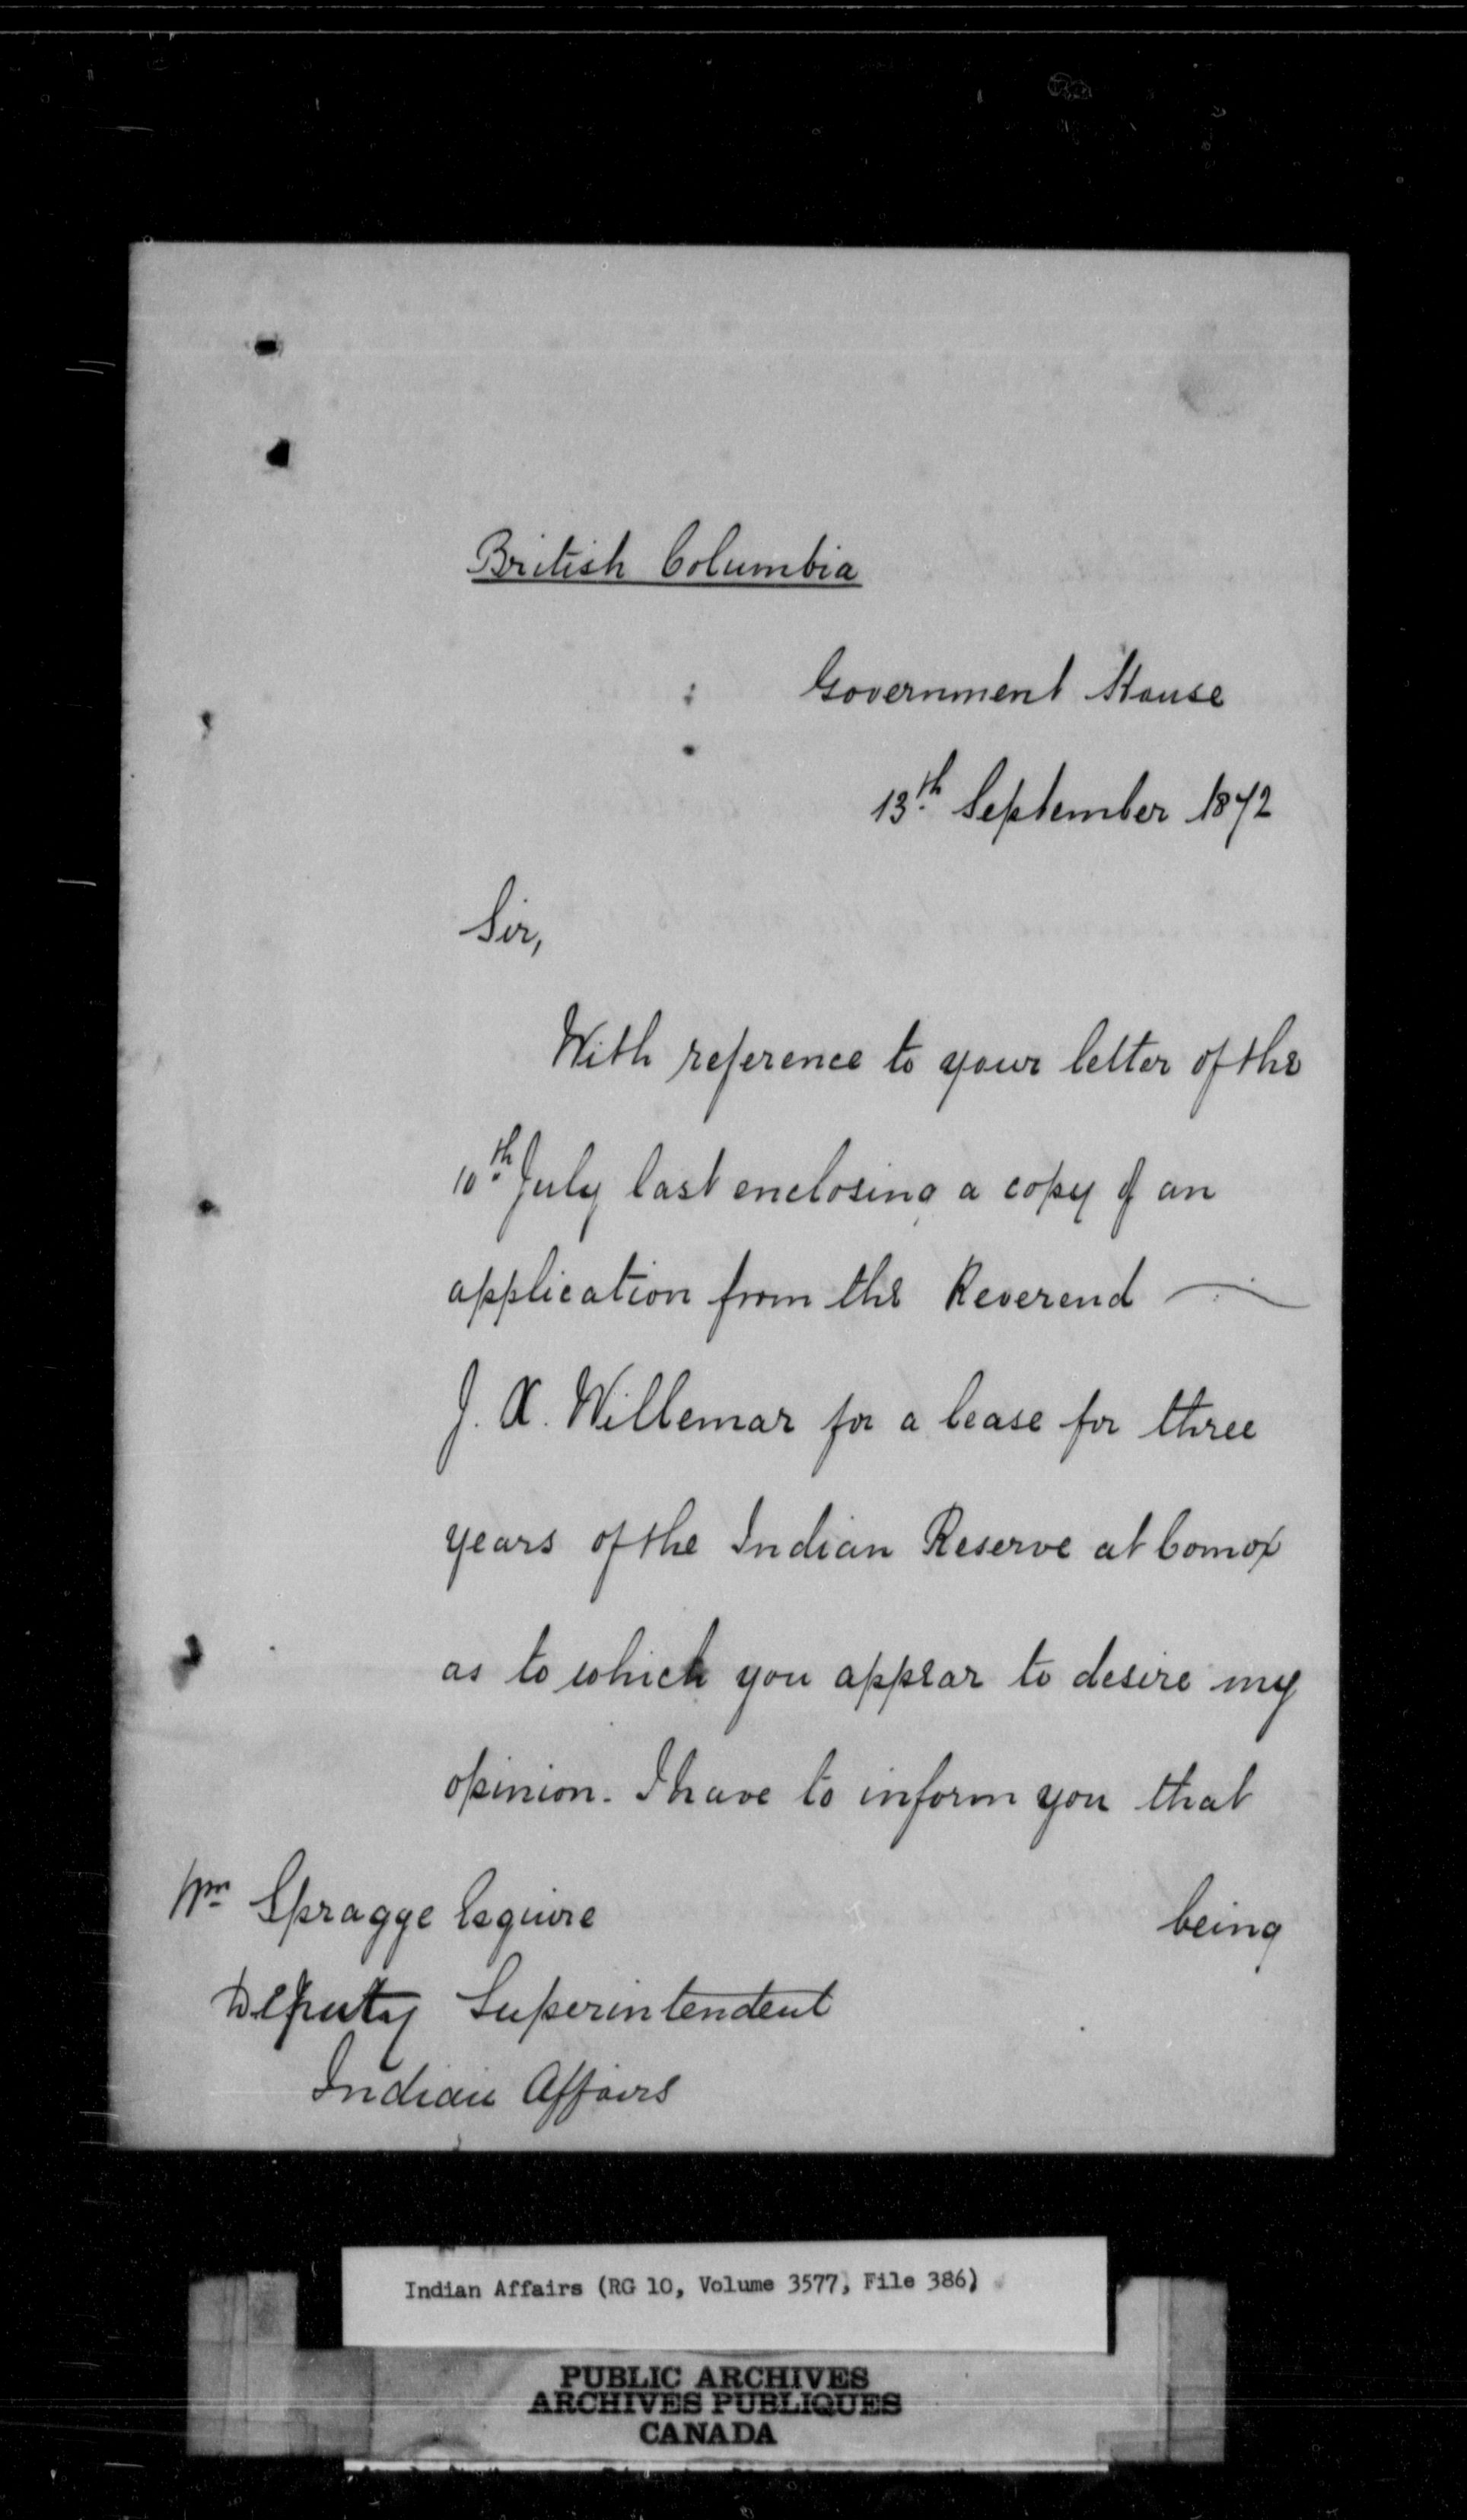 British Columbia
Government House
13th September 1872
Sir,
With reference to your letter of the
10th July last enclosing a copy of an
application from the Reverend
J. X. Willemar for a lease for three
years of the Indian Reserve at Comox
as to which you appear to desire my
opinion. I have to inform you that
being
Wm Spragge Esquire
Deputy Superintendent
Indian Affairs
Indian Affairs (RG 10, Volume 3577, File 386)
PUBLIC ARCHIVES
ARCHIVES PUBLIQUES
CANADA